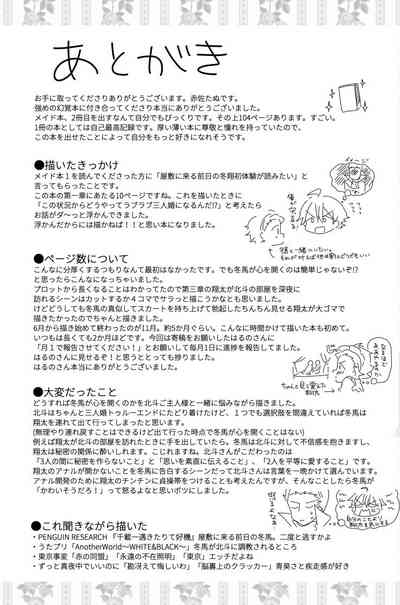 あとがき
お手に取ってくださりありがとうございます。赤佐たぬです。
強めの幻覚本に付き合ってくださり本当にありがとうございました。
メイド本、2冊目を出すなんて自分でもびっくりです。その上104ページあります。すごい。
1冊の本としては自己最高記録です。厚い薄い本に尊敬と憧れを持っていたので、
この本を出せたことによって自分をもっと好きになれそうです。
●描いたきっかけ
メイド本1を読んでくださった方に「屋敷に来る前日の冬翔初体験が読みたい」と
言ってもらったことです。
この本の第一章にあたる10ページですね。これを描いたときに
「この状況からどうやってラブラブ三人婚になるんだ!?」と考えたら
お話がダ〜っと浮かんできました。
浮かんだからには描かねば!!と思い本になりました。
●ページ数について
こんなに分厚くするつもりなんて最初はなかったです。でも冬馬が心を開くのは簡単じゃないぞ!?
と思ったらこんなになっちゃいました。
プロットから長くなることはわかってたので第三章の翔太が北斗の部屋を深夜に
訪れるシーンはカットするか4コマでサラっと描こうかなとも思いました。
けどどうしても冬馬の真似してスカートを持ち上げて勃起したちんちん見せる翔太が大ゴマで
描きたかったのでちゃんと描きました。
6月から描き始めて終わったのが11月。約5か月ぐらい。こんなに時間かけて描いた本も初めて。
いつもは長くても2か月ほどです。今回は寄稿をお願いしたはるのさんに
「月1で報告させてください!」とお願いして毎月1日に進捗を報告してました。
はるのさんに見せるぞ!と思うととっても捗りました。
はるのさん本当にありがとうございました。
●大変だったこと
どうすれば冬馬が心を開くのかを北斗ご主人様と一緒に悩みながら描きました。
北斗はちゃんと三人婚トゥルーエンドにたどり着けたけど、1つでも選択肢を間違えていれば冬馬は
翔太を連れて出て行ってしまったと思います。
(無理やり連れ戻すことはできるけど出て行った時点で冬馬が心を開くことはない)
例えば翔太が北斗の部屋を訪れたときに手を出していたら。冬馬は北斗に対して不信感を抱きますし、
翔太は秘密の関係に酔いしれます。こじれますね。北斗さんがこだわったのは
「3人の間に秘密を作らないこと」と「思いを素直に伝えること」、「2人を平等に愛すること」です。
翔太のアナルが開かないことを冬馬に告白するシーンだって北斗さんは言葉を一晩かけて選んでいます。
アナル開発のために翔太のチンチンに貞操帯をつけることも考えたんですが、そんなことしたら冬馬が
「かわいそうだろ!」って怒るよなと思いボツにしました。
●これ聞きながら描いた
・PENGUIN RESEARCH 「千載一遇きたりて好機」屋敷に来る前日の冬馬。二度と逃すかよ
・うたプリ「AnotherWorld〜WHITE&BLACK〜」冬馬が北斗に調教されるところ
・東京事変「赤の同盟」「永遠の不在証明」「東京」エッチだよね
・ずっと真夜中でいいのに「勘冴えて悔しいわ」「脳裏上のクラッカー」青葵さと疾走感が好き